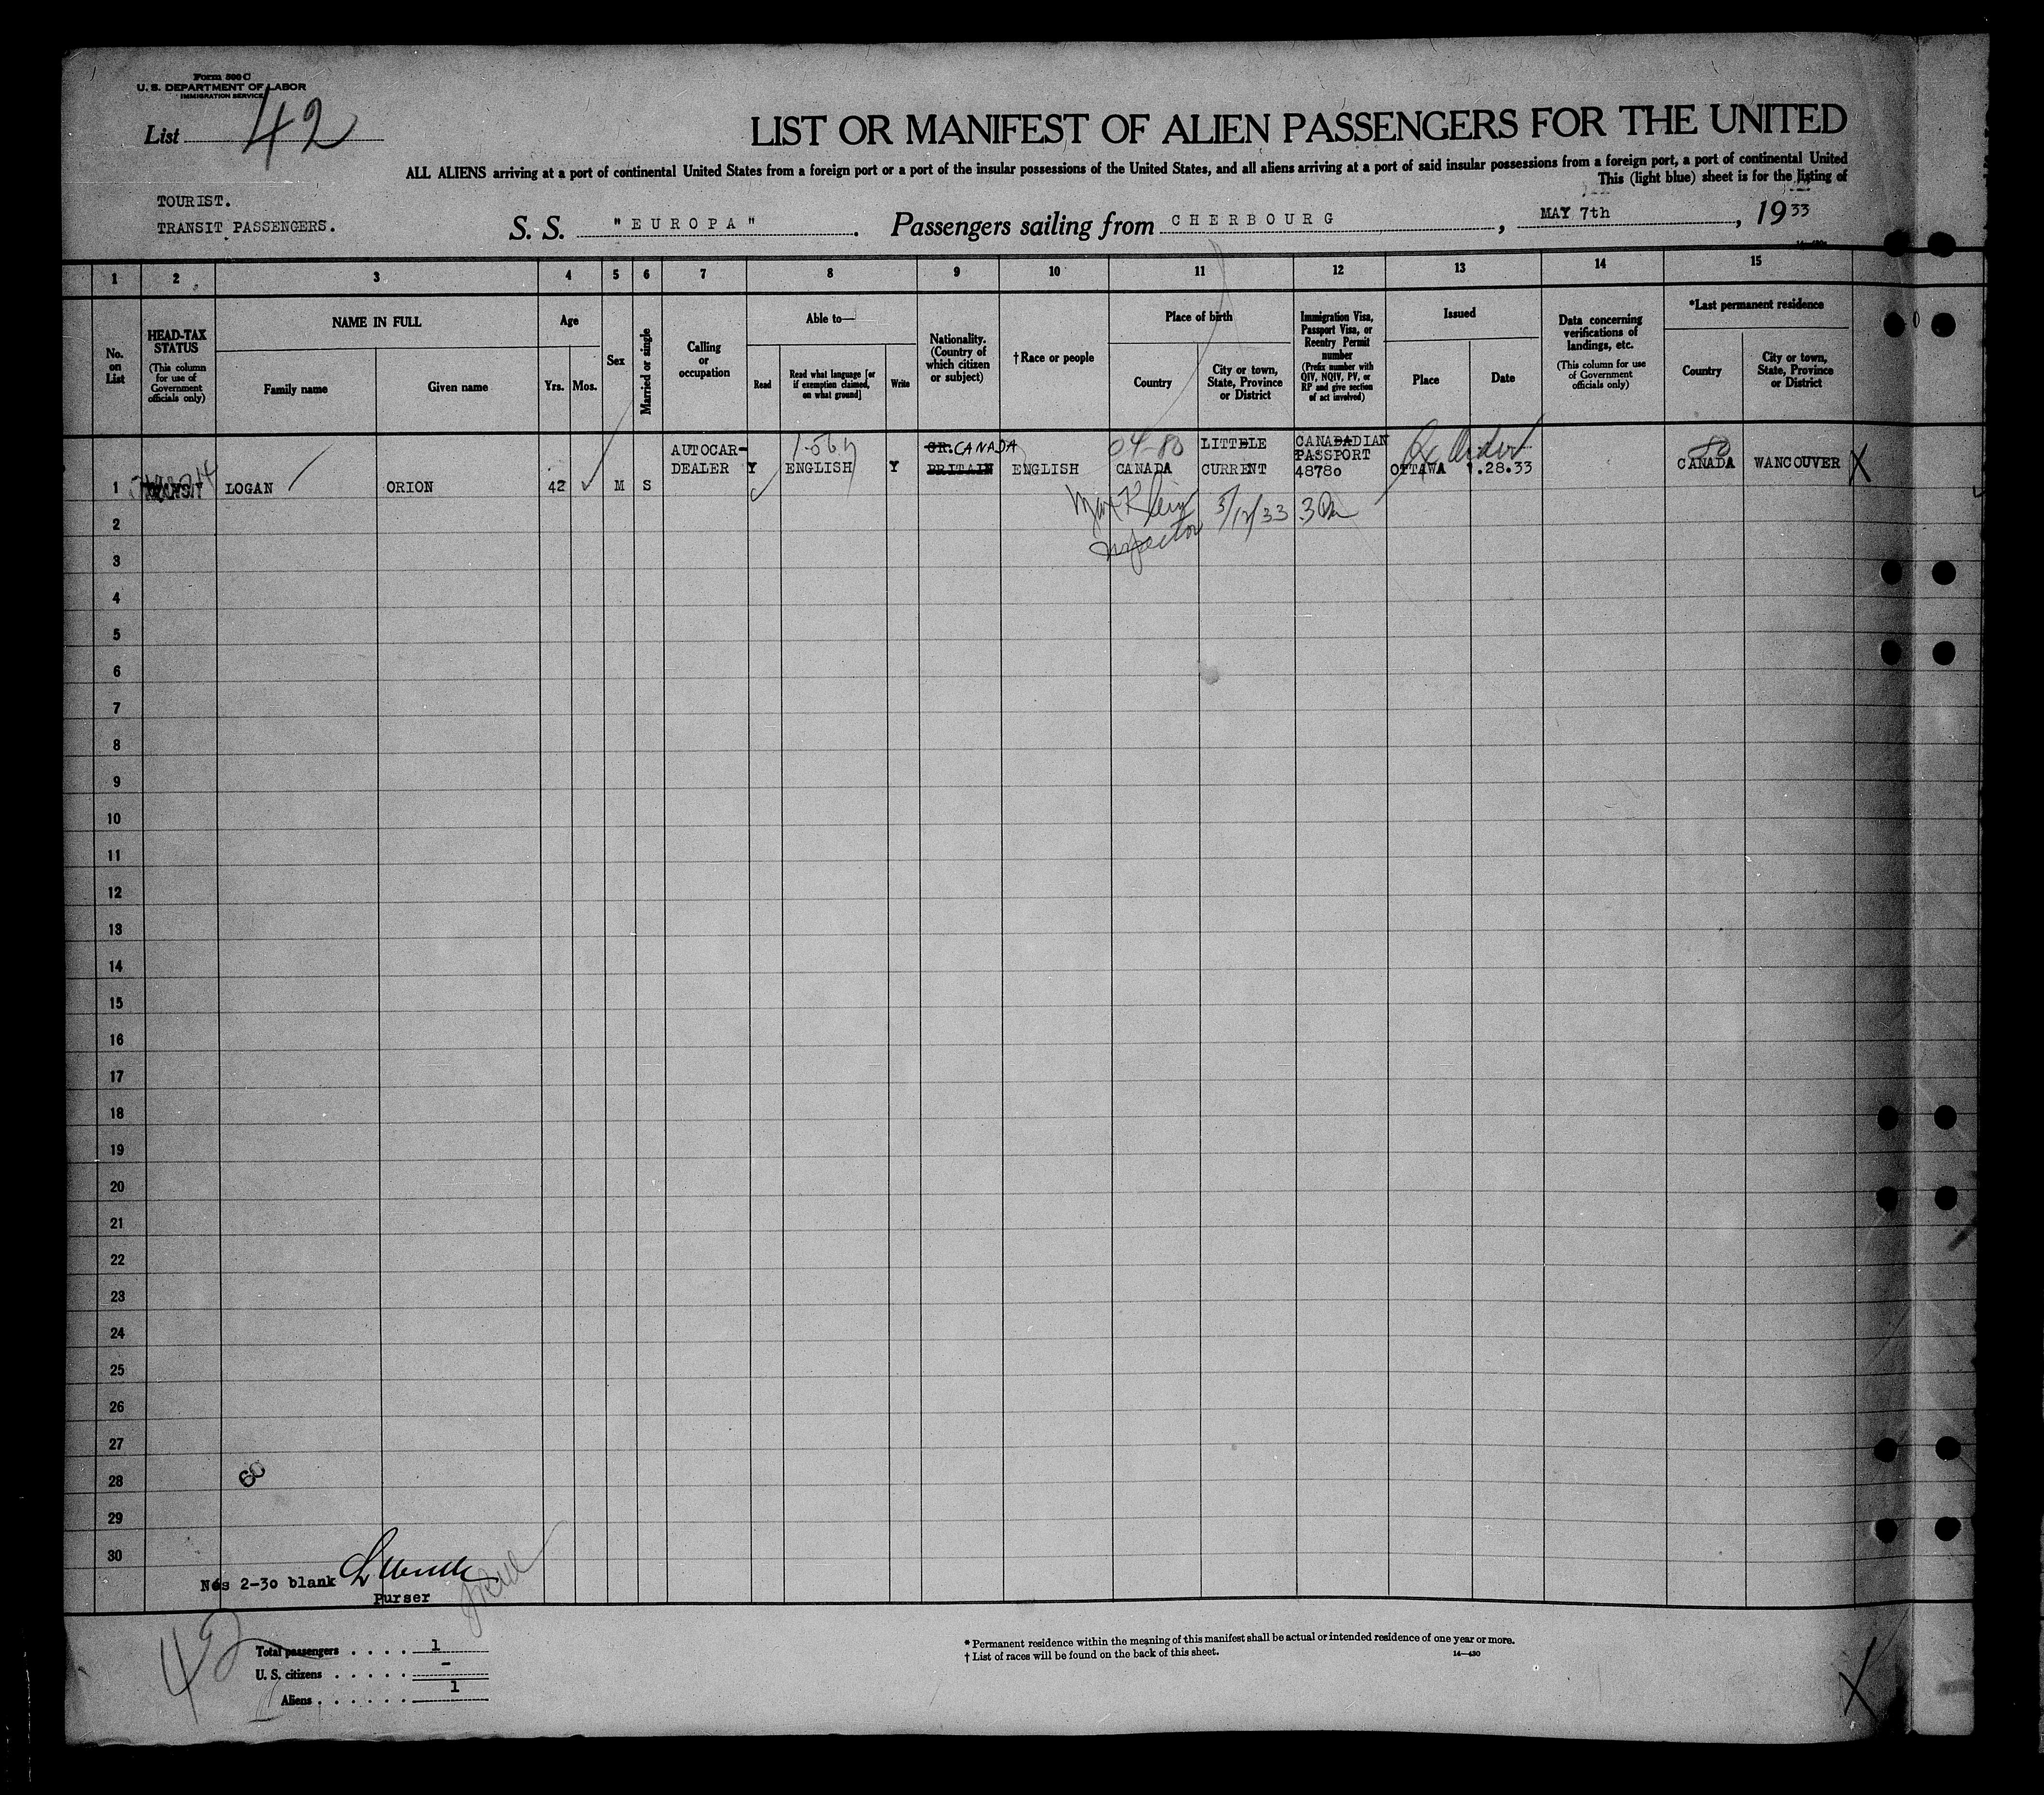 Form 500 C
U. S. DEPARTMENT OF LABOR
IMMIGRATION SERVICE
List 42
LIST OR MANIFEST OF ALIEN PASSENGERS FOR THE UNITED
ALL ALIENS arriving at a port of continental United States from a foreign port or a port of the insular possessions of the United States, and all aliens arriving at a port of said insular possessions from a foreign port, a port of continental United
This (light blue) sheet is for the listing of
TOURIST.
TRANSIT PASSENGERS.
S. S. "EUROPA". Passengers sailing from CHERBOURG, MAY 7th, 1933
1 2 3 4 5 6 7 8 9 10 11 12 13 14 15
No. on List
HEAD-TAX STATUS
(This column for use of Government officials only)
NAME IN FULL
Family name
Given name
Age
Yrs. Mos.
Sex
Married or single
Calling or occupation
Able to—
Read
Read what language [or if exemption claimed, on what ground]
Write
Nationality. (Country of which citizen or subject)
†Race or people
Place of birth
Country
City or town, State, Province or District
Immigration Visa, Passport Visa, or Reentry Permit number
(Prefix number with QIV, NQIV, PV, or RP and give section of act involved)
Issued
Place
Date
Data concerning verifications of landings, etc.
(This column for use of Government officials only)
*Last permanent residence
Country
City or town, State, Province or District
1 TRANSIT LOGAN ORION 42 M S
AUTOCAR-
DEALER Y ENGLISH Y
GR. CANADA
BRITAIN ENGLISH
04-80
CANADA
LITTDLE
CURRENT
CANADADIAN
PASSPORT
48780
OTTAWA
.28.33
CANADA WANCOUVER X
Max Klein 5/12/33
Inspector
2
3
4
5
6
7
8
9
10
11
12
13
14
15
16
17
18
19
20
21
22
23
24
25
26
27
28
29
30
60
Nos 2-30 blank
Purser
42
Total passengers . . . . 1
U. S. citizens . . . . . -
Aliens . . . . . . 1
* Permanent residence within the meaning of this manifest shall be actual or intended residence of one year or more.
† List of races will be found on the back of this sheet.
14—430
X